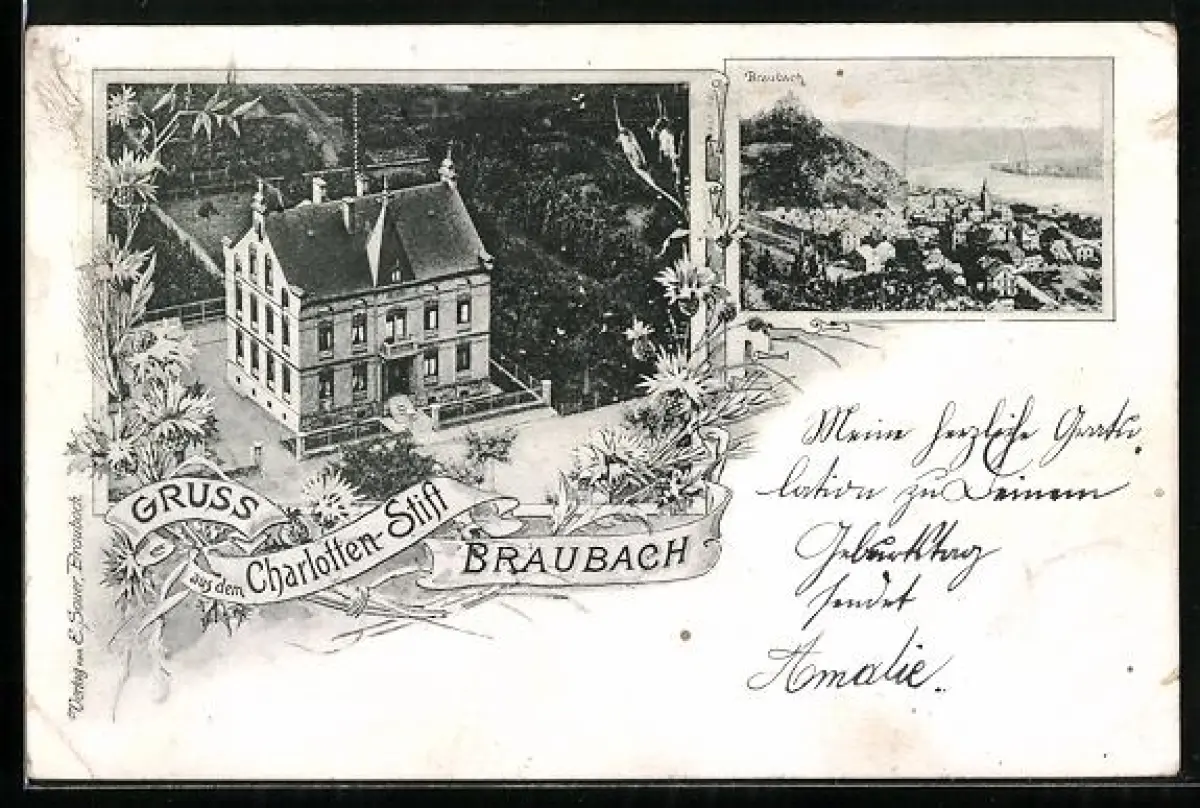 Braubach
GRUSS
aus dem Charlotten-Stift
BRAUBACH
Verlag von E. Sauer, Braubach
Meine herzliche Gratu-
lation zu Deinem
Geburtstag
sendet
Amalie.